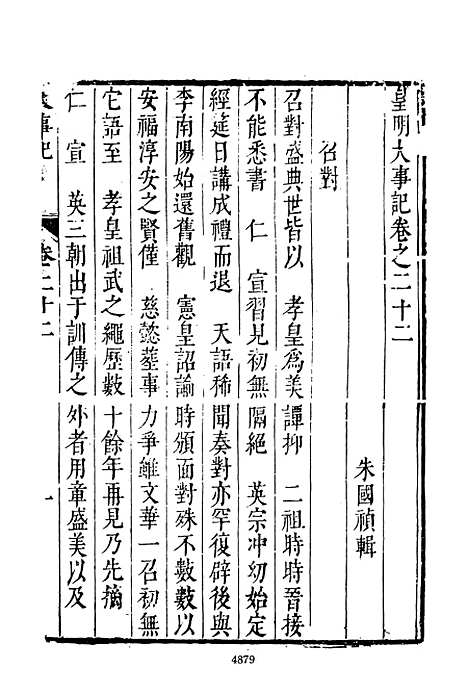 皇明大事記卷之二十二
朱國禎輯
召對
召對盛典世皆以　孝皇爲美譚抑　二祖時時晉接
不能悉書　仁　宣習見初無隔絕　英宗冲幼始定
經筵日講成禮而退　天語稀聞奏對亦罕復辟後與
李南陽始還舊觀　憲皇詔諭時頒面對殊不數數以
安福淳安之賢僅　慈懿塟事力爭雖文華一召初無
它語至　孝皇祖武之繩歷數十餘年再見乃先摘
仁　宣　英三朝出于訓傳之外者用童盛美以及
大事記　卷二十二　一
4879